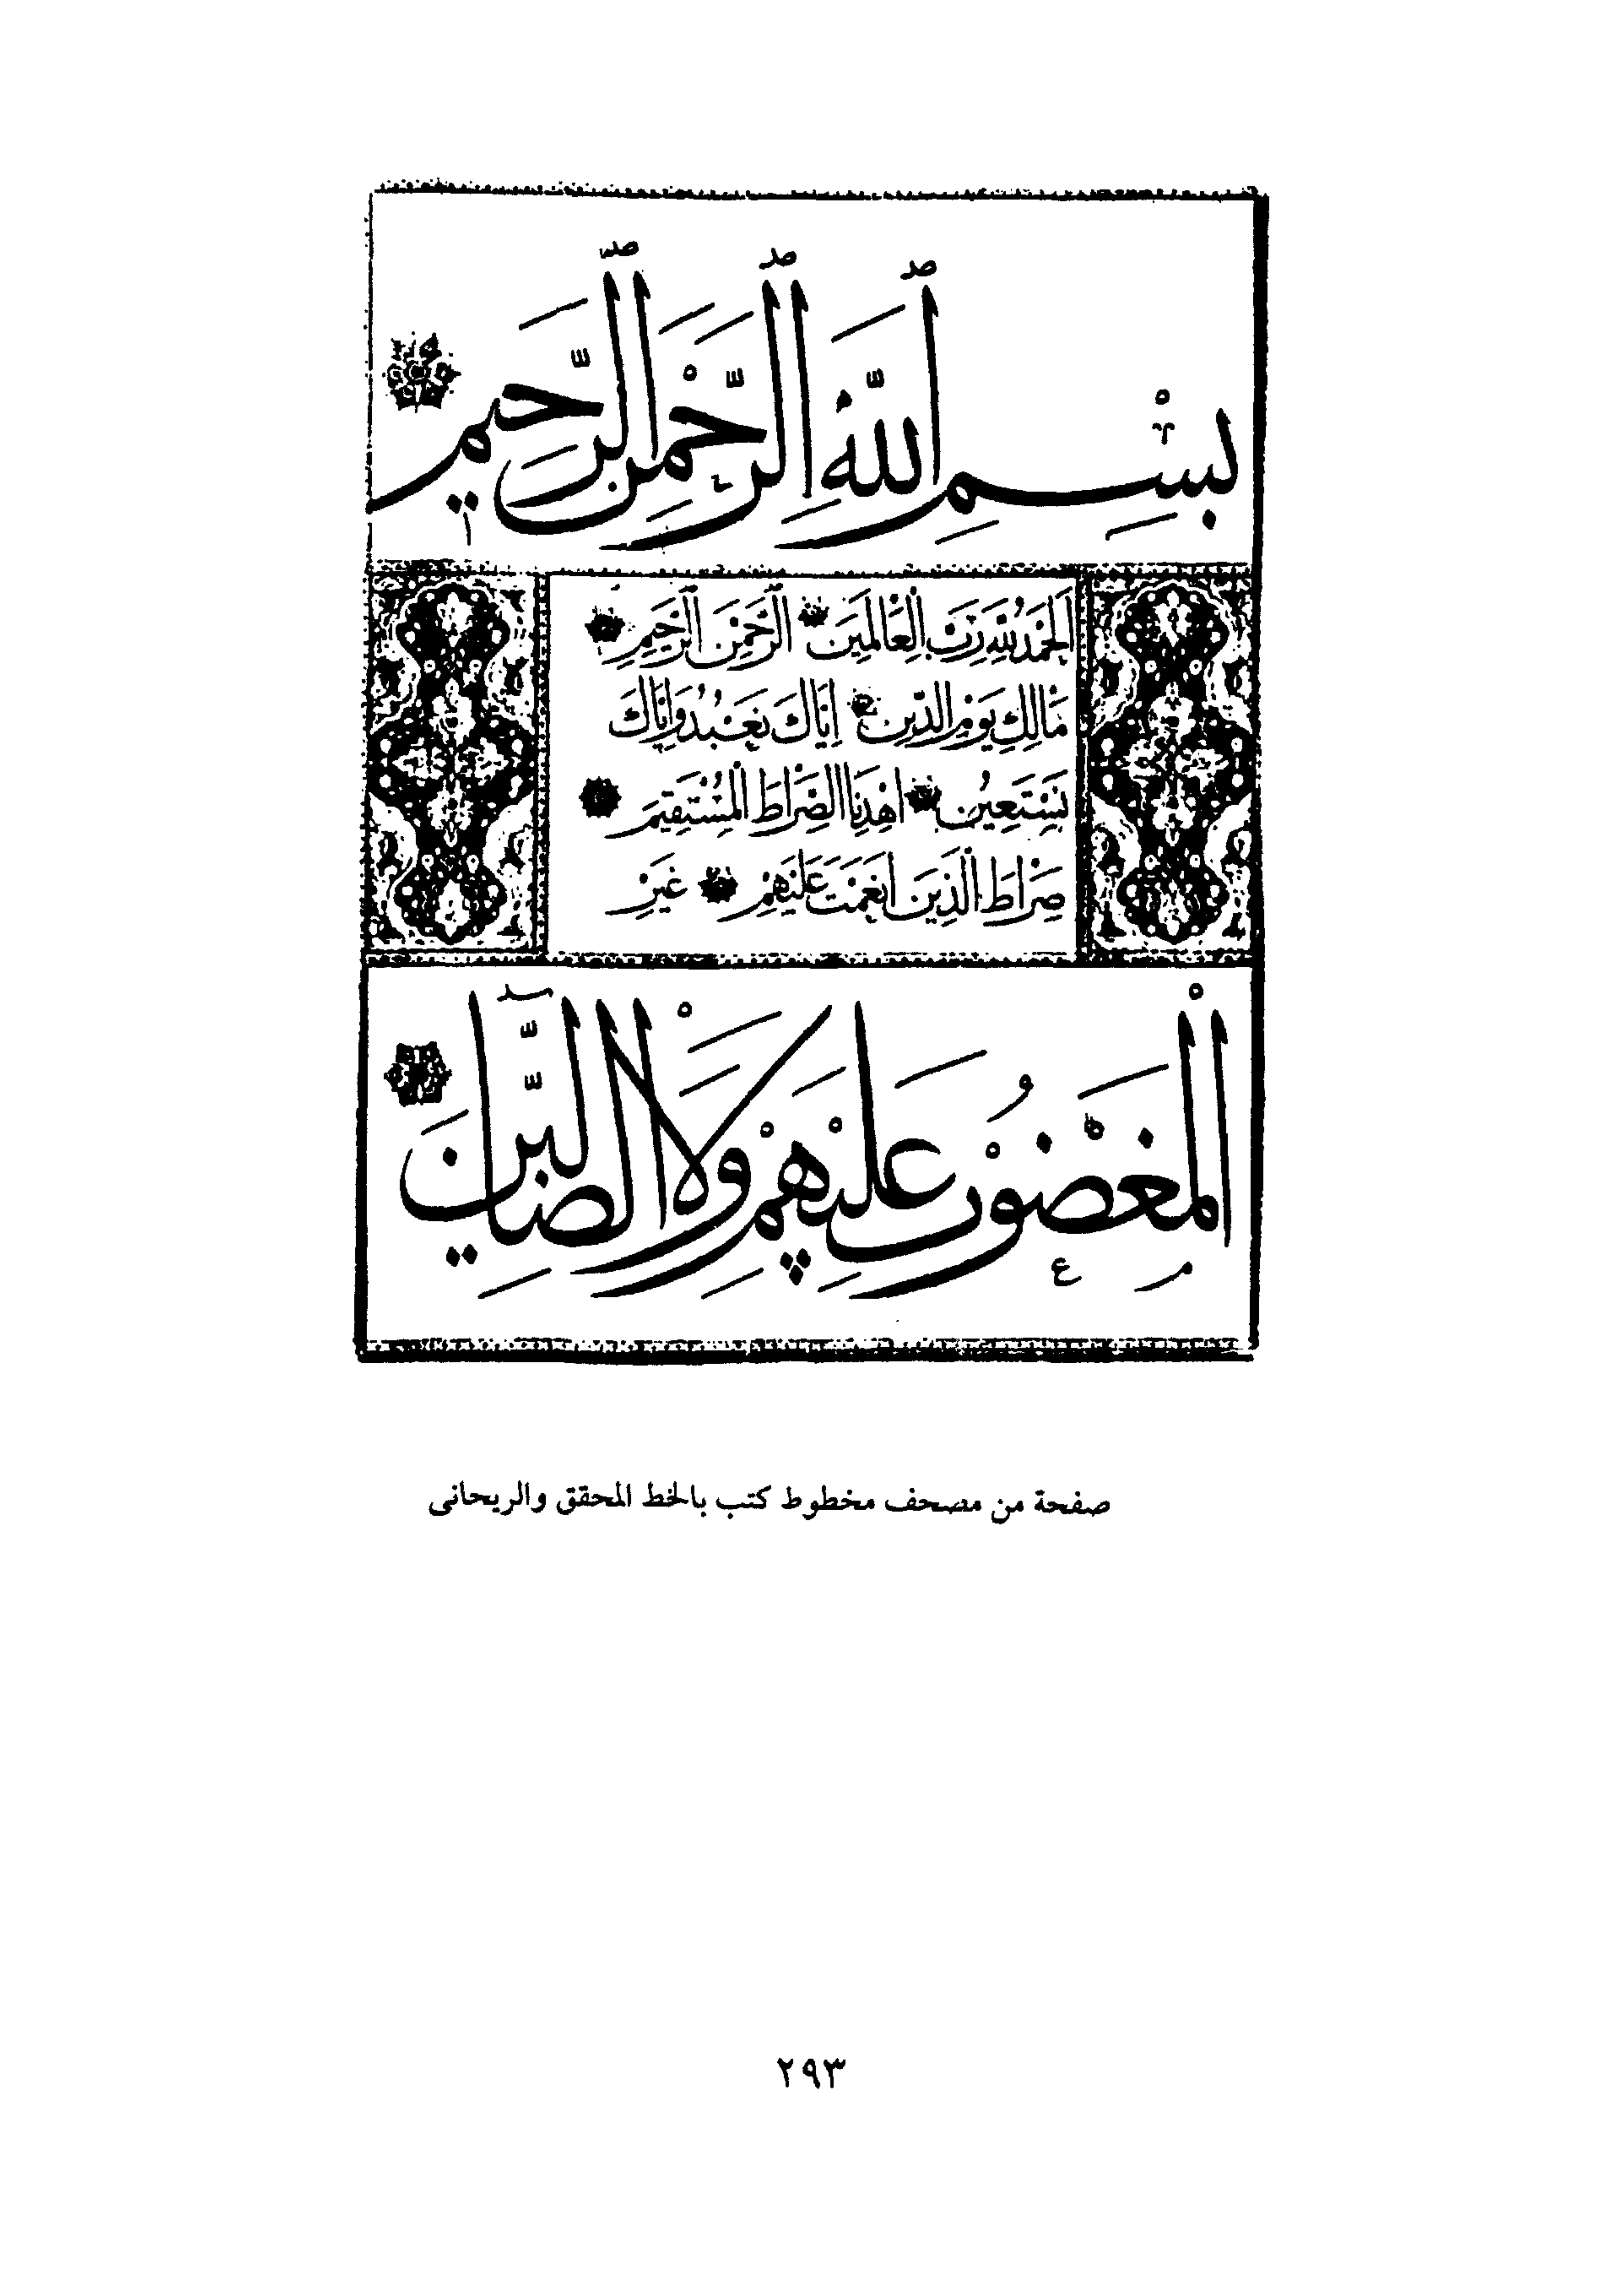 بِسْمِ ٱللَّهِ ٱلرَّحْمٰنِ ٱلرَّحِيمِ
اَلْحَمْدُ لِلّٰهِ رَبِّ الْعَالَمِينَ الرَّحْمٰنِ الرَّحِيمِ
مَالِكِ يَوْمِ الدِّينِ اِيَّاكَ نَعْبُدُ وَاِيَّاكَ
نَسْتَعِينُ اهْدِنَا الصِّرَاطَ الْمُسْتَقِيمَ
صِرَاطَ الَّذِينَ اَنْعَمْتَ عَلَيْهِمْ غَيْرِ
الْمَغْضُوبِ عَلَيْهِمْ وَلَا الضَّالِّينَ
صفحة من مصحف مخطوط كتب بالخط المحقق والريحانى
٢٩٣